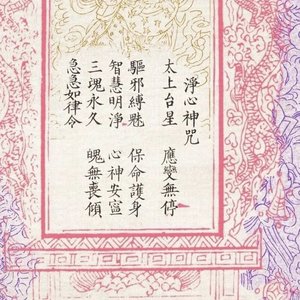 淨心神咒
太上台星　應變無停
驅邪縛魅　保命護身
智慧明淨　心神安寧
三魂永久　魄無喪傾
急急如律令